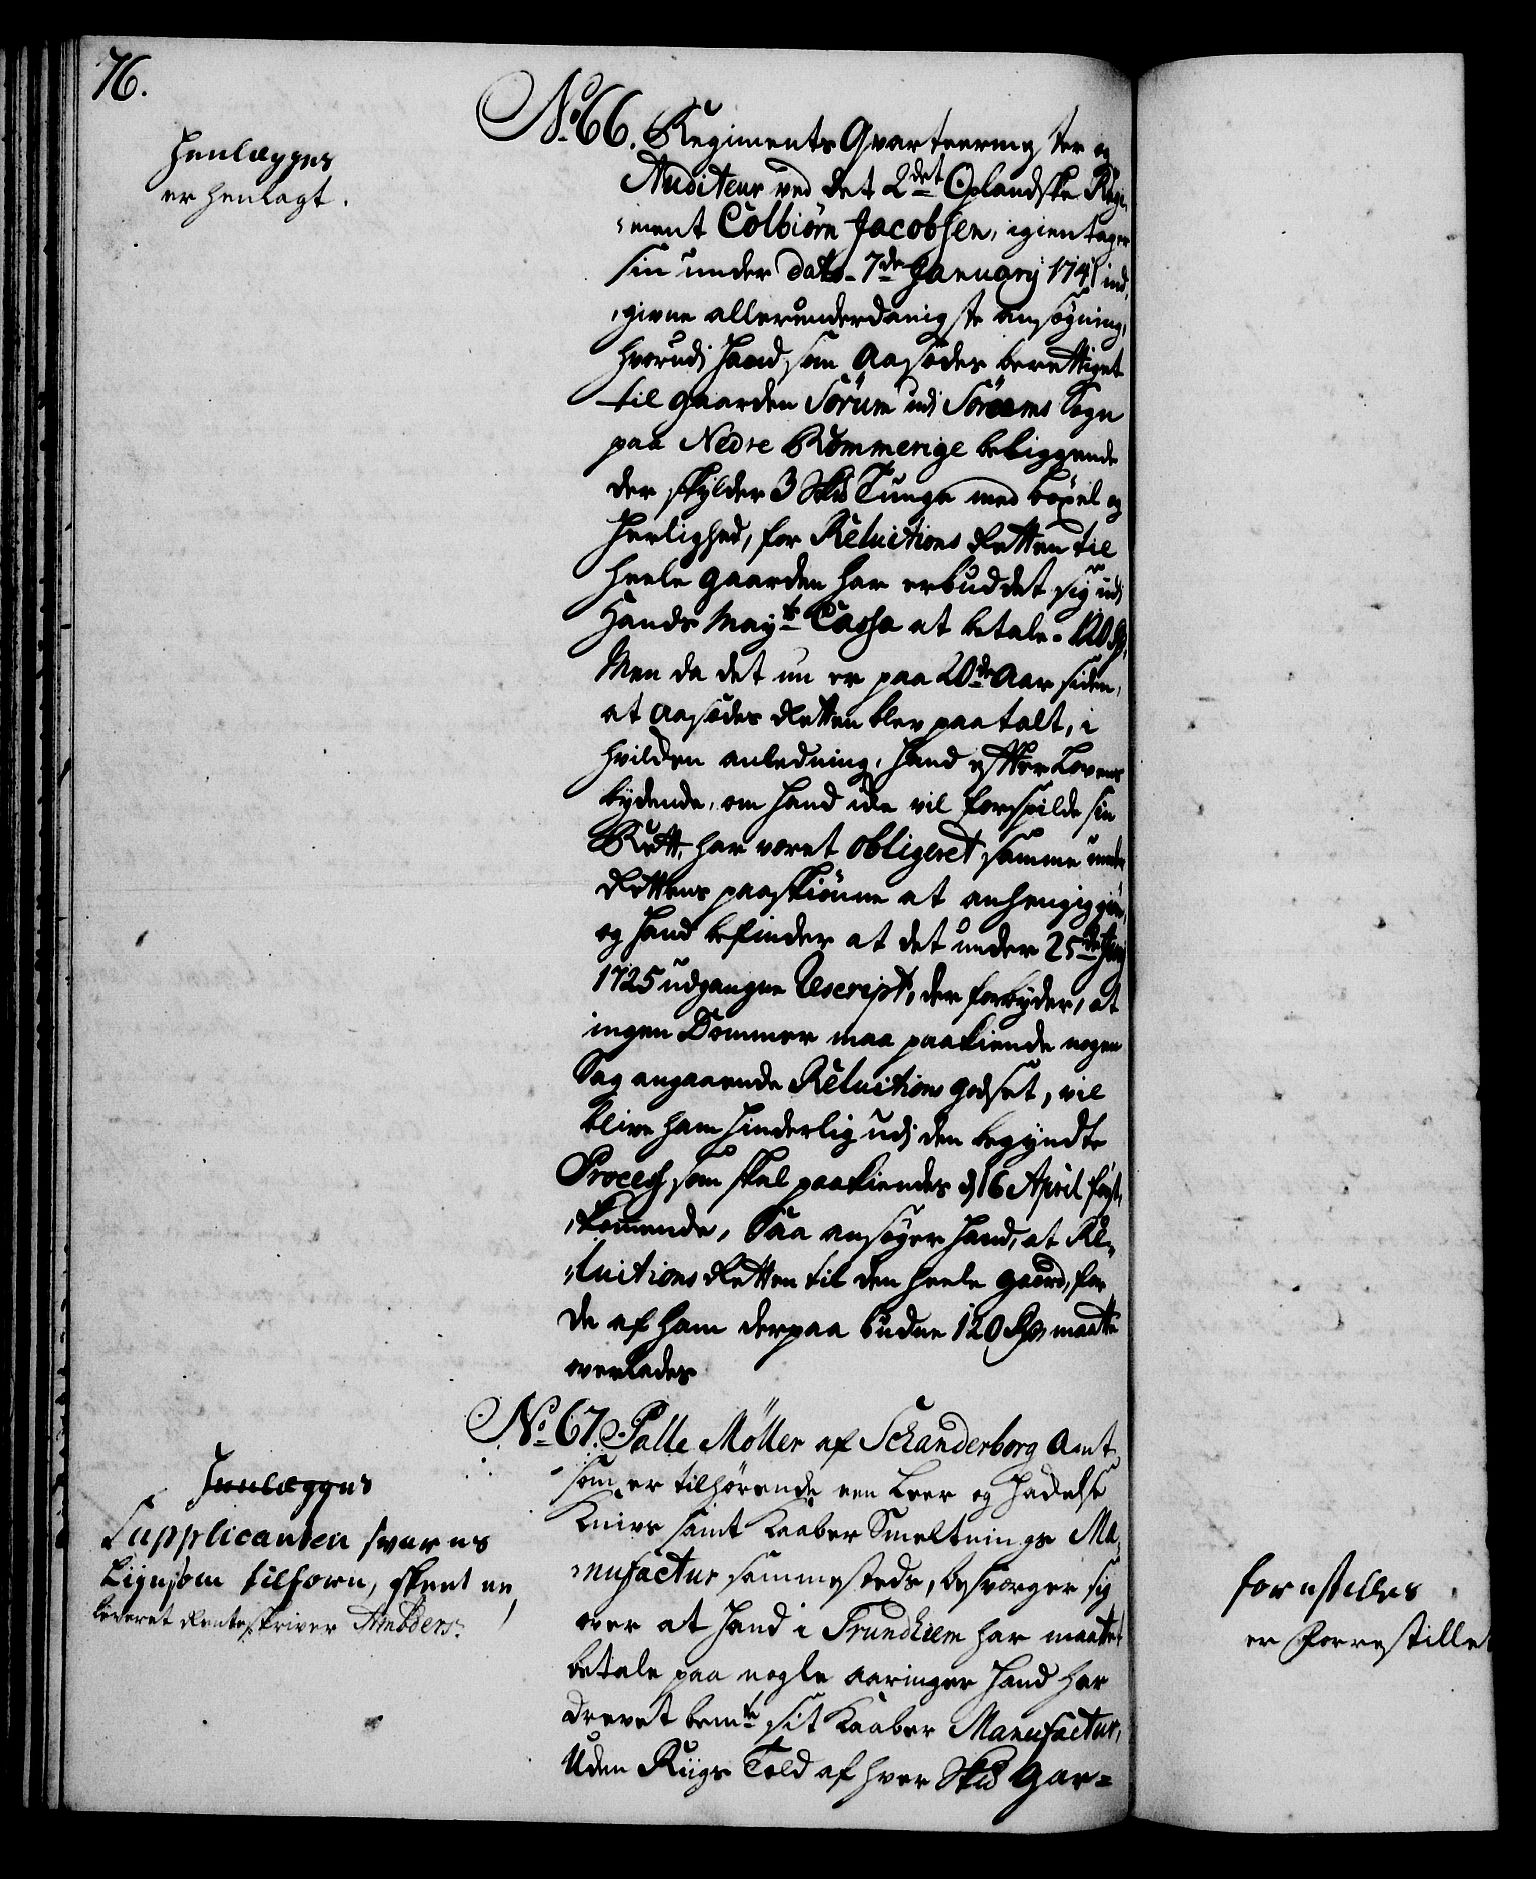 76.
Henlægges
er henlagt.
No 66. Regiments Qvarteermester og
Auditeur ved det 2det Oplandske Regi-
-ment Colbiörn Jacobsen, igientager
sin under dato 7de January 1741 ind-
-givne allerunderdanigste ansøgning,
hvorudi hand som Aasædes berettiget
til gaarden Sörum udi Söroms Sogn
paa Nedre Rommerige beliggende
der skylder 3 Skd Tunge med böxel og
herlighed, for Reluitions Retten til
heele gaarden har erbuddet sig udi
Hands Mayts Cassa at betale 120 Rd,
Men da det nu er paa 20de Aar siden,
at Aasædes Retten blev paatalt, i
hvilken anledning, hand efter Lovens
bydende, om hand icke vil forspilde sin
Rett, har været obligeret samme under
Rettens paaskiönne at anhengiggiöre,
og hand befinder at det under 25de Juny
1725 udgangne Rescript, der forbyder, at
ingen Dommer maa paakiende nogen
Sag angaaende Reluitions godset, vil
blive ham hinderlig udi den begyndte
Process som skal paakiendes d 16 April först-
-kommende, Saa ansøger hand, at Re-
-luitions Retten til den heele gaard, for
de af ham derpaa budne 120 Rd maatte
overlades
No 67. Palle Möller af Schanderborg Amt
som er tilhörende een Leer og Hackelse
Knivs samt Kaaber Smeltnings Ma-
-nufactur sammesteds, besværger sig
over at hand i Trundhiem har maattet
betale paa nogle aaringer hand har
drevet bemte sit Kaaber Manufactur,
Uden Riigs Told af hver Skd Gar=
Henlægges
Supplicanten svares
Ligesom tilforn, skeet er,
leveret Renteskriver
forestilles
er Forrestillet